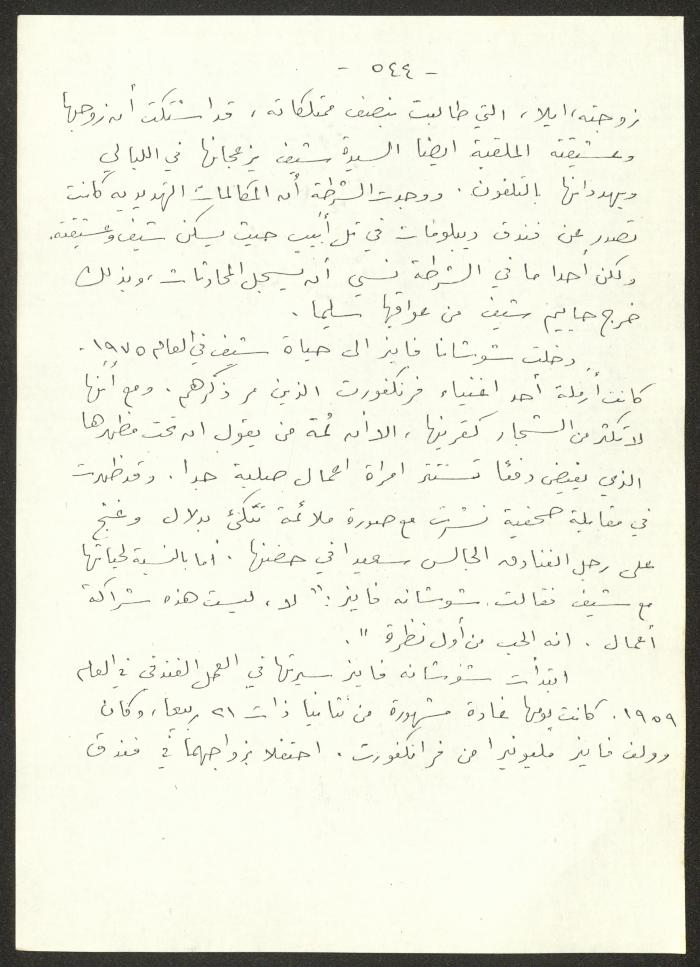 - ٥٤٤ -
زوجته، ايلا، التي طالبت بنصف ممتلكاته، قد اشتكت أن زوجها
وعشيقته الملقبة ايضا السيدة شيف يزعجانها في الليالي
ويهددانها بالتلفون. ووجدت الشرطة أن المكالمات التهديدية كانت
تصدر عن فندق ديبلومات في تل أبيب حيث يسكن شيف وعشيقته.
ولكن أحدا ما في الشرطة نسي أن يسجل المحادثات، وبذلك
خرج حاييم شيف من عواقبها سليما.
دخلت شوشانا فاينز الى حياة شيف في العام ١٩٧٥.
كانت أرملة أحد اغنياء فرنكفورت الذين مر ذكرهم. ومع أنها
لا تكثر من الشجار كقرينها، الا أن ثمة من يقول انه تحت مظهرها
الذي يفيض دفئا تستتر امرأة اعمال صلبة جدا. وقد ظهرت
في مقابلة صحفية نشرت مع صورة ملائمة تتكئ بدلال وغنج
على رجل الفنادق الجالس سعيدا في حضنها. أما بالنسبة لحياتها
مع شيف فقالت شوشانه فاينز: " لا، ليست هذه شراكة
أعمال. انه الحب من أول نظرة ".
ابتدأت شوشانه فاينز سيرتها في العمل الفندقي في العام
١٩٥٩. كانت يومها غادة مشهورة من نتانيا ذات ٢١ ربيعا، وكان
وولف فاينز مليونيرا من فرانكفورت. احتفلا بزواجهما في فندق